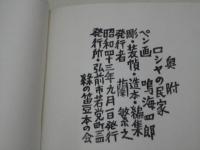 奥附
ロシヤの民家
ペン画 鳴海四郎
彫・装幀・造本・編集
発行者 蘭繁之
昭和四十三年九月一日発行
発行所・弘前市若党町三一
緑の笛豆本の会